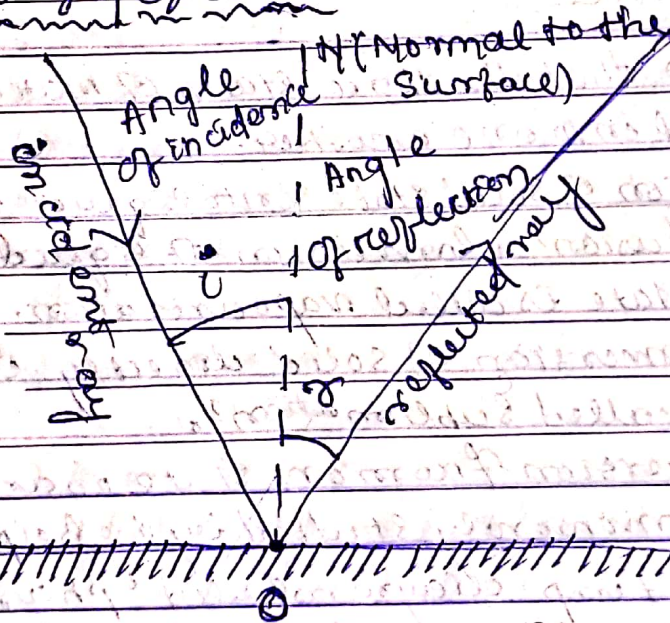 N (Normal to the
Surface)
Angle
of incidence
Angle
of reflection
incident ray
i
r
reflected ray
O